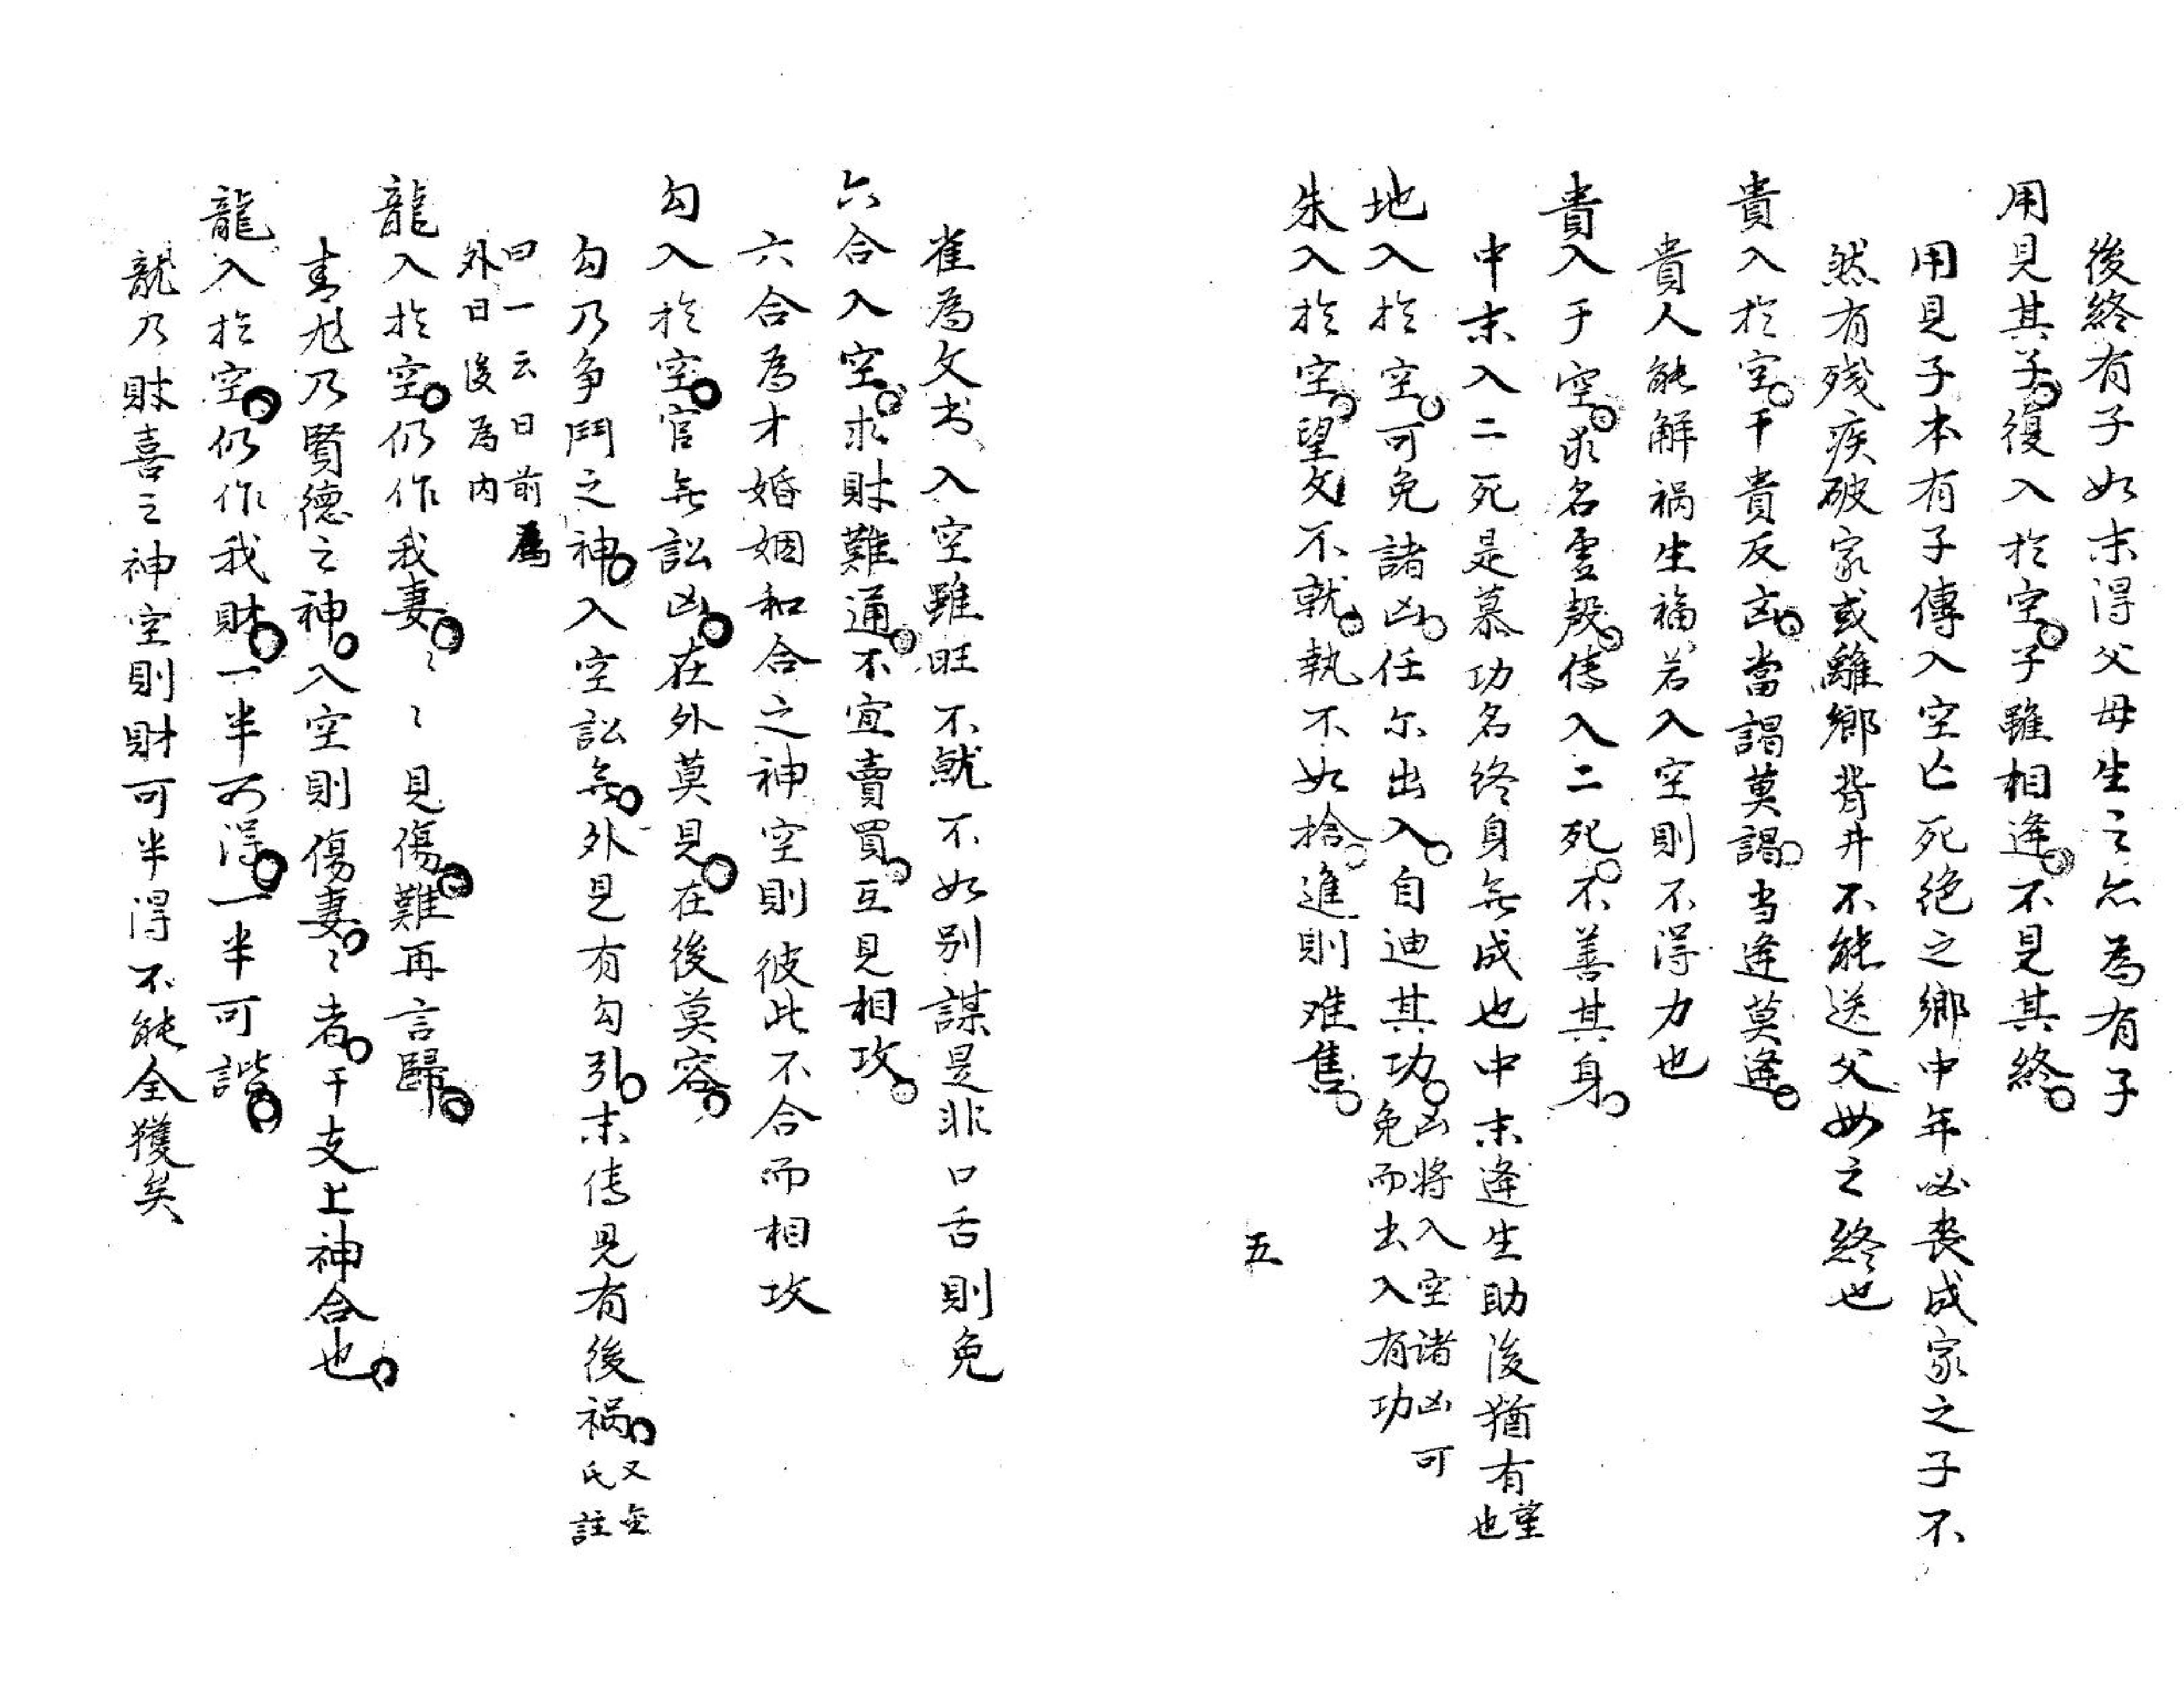 後終有子如末得父母生之亦為有子
用見其子。復入於空。子雖相逢。不見其終。
用見子本有子傳入空亡死絕之鄉中年必丧成家之子不
然有残疾破家或離鄉背井不能送父母之終也
貴入於空。干貴反凶。當謁莫謁。当逢莫逢。
貴人能解禍生福若入空則不得力也
貴入于空。求名虛殷。傳入二死。不善其身。
中末入二死是慕功名終身無成也中末逢生助後猶有望也
地入於空。可免諸凶。任尔出入。自迪其功。凶将入空諸凶可
免而出入有功
朱入於空。望文不就。執不如捨。進則难售。
五
雀為文书入空雖旺不就不如别謀是非口舌則免
六合入空。求財難通。不宜賣買。互見相攻。
六合為才婚姻和合之神空則彼此不合而相攻
勾入於空。官無訟凶。在外莫見。在後莫容。
勾乃争鬥之神。入空訟無。外見有勾引。末傳見有後禍。又金
氏註
曰一云日前為
外日後為内
龍入於空。仍作我妻。〻〻見傷。難再言歸。
青龙乃賢德之神。入空則傷妻。〻者。干支上神合也。
龍入於空。仍作我財。一半可得。一半可諧。
龍乃財喜之神空則財可半得不能全獲矣